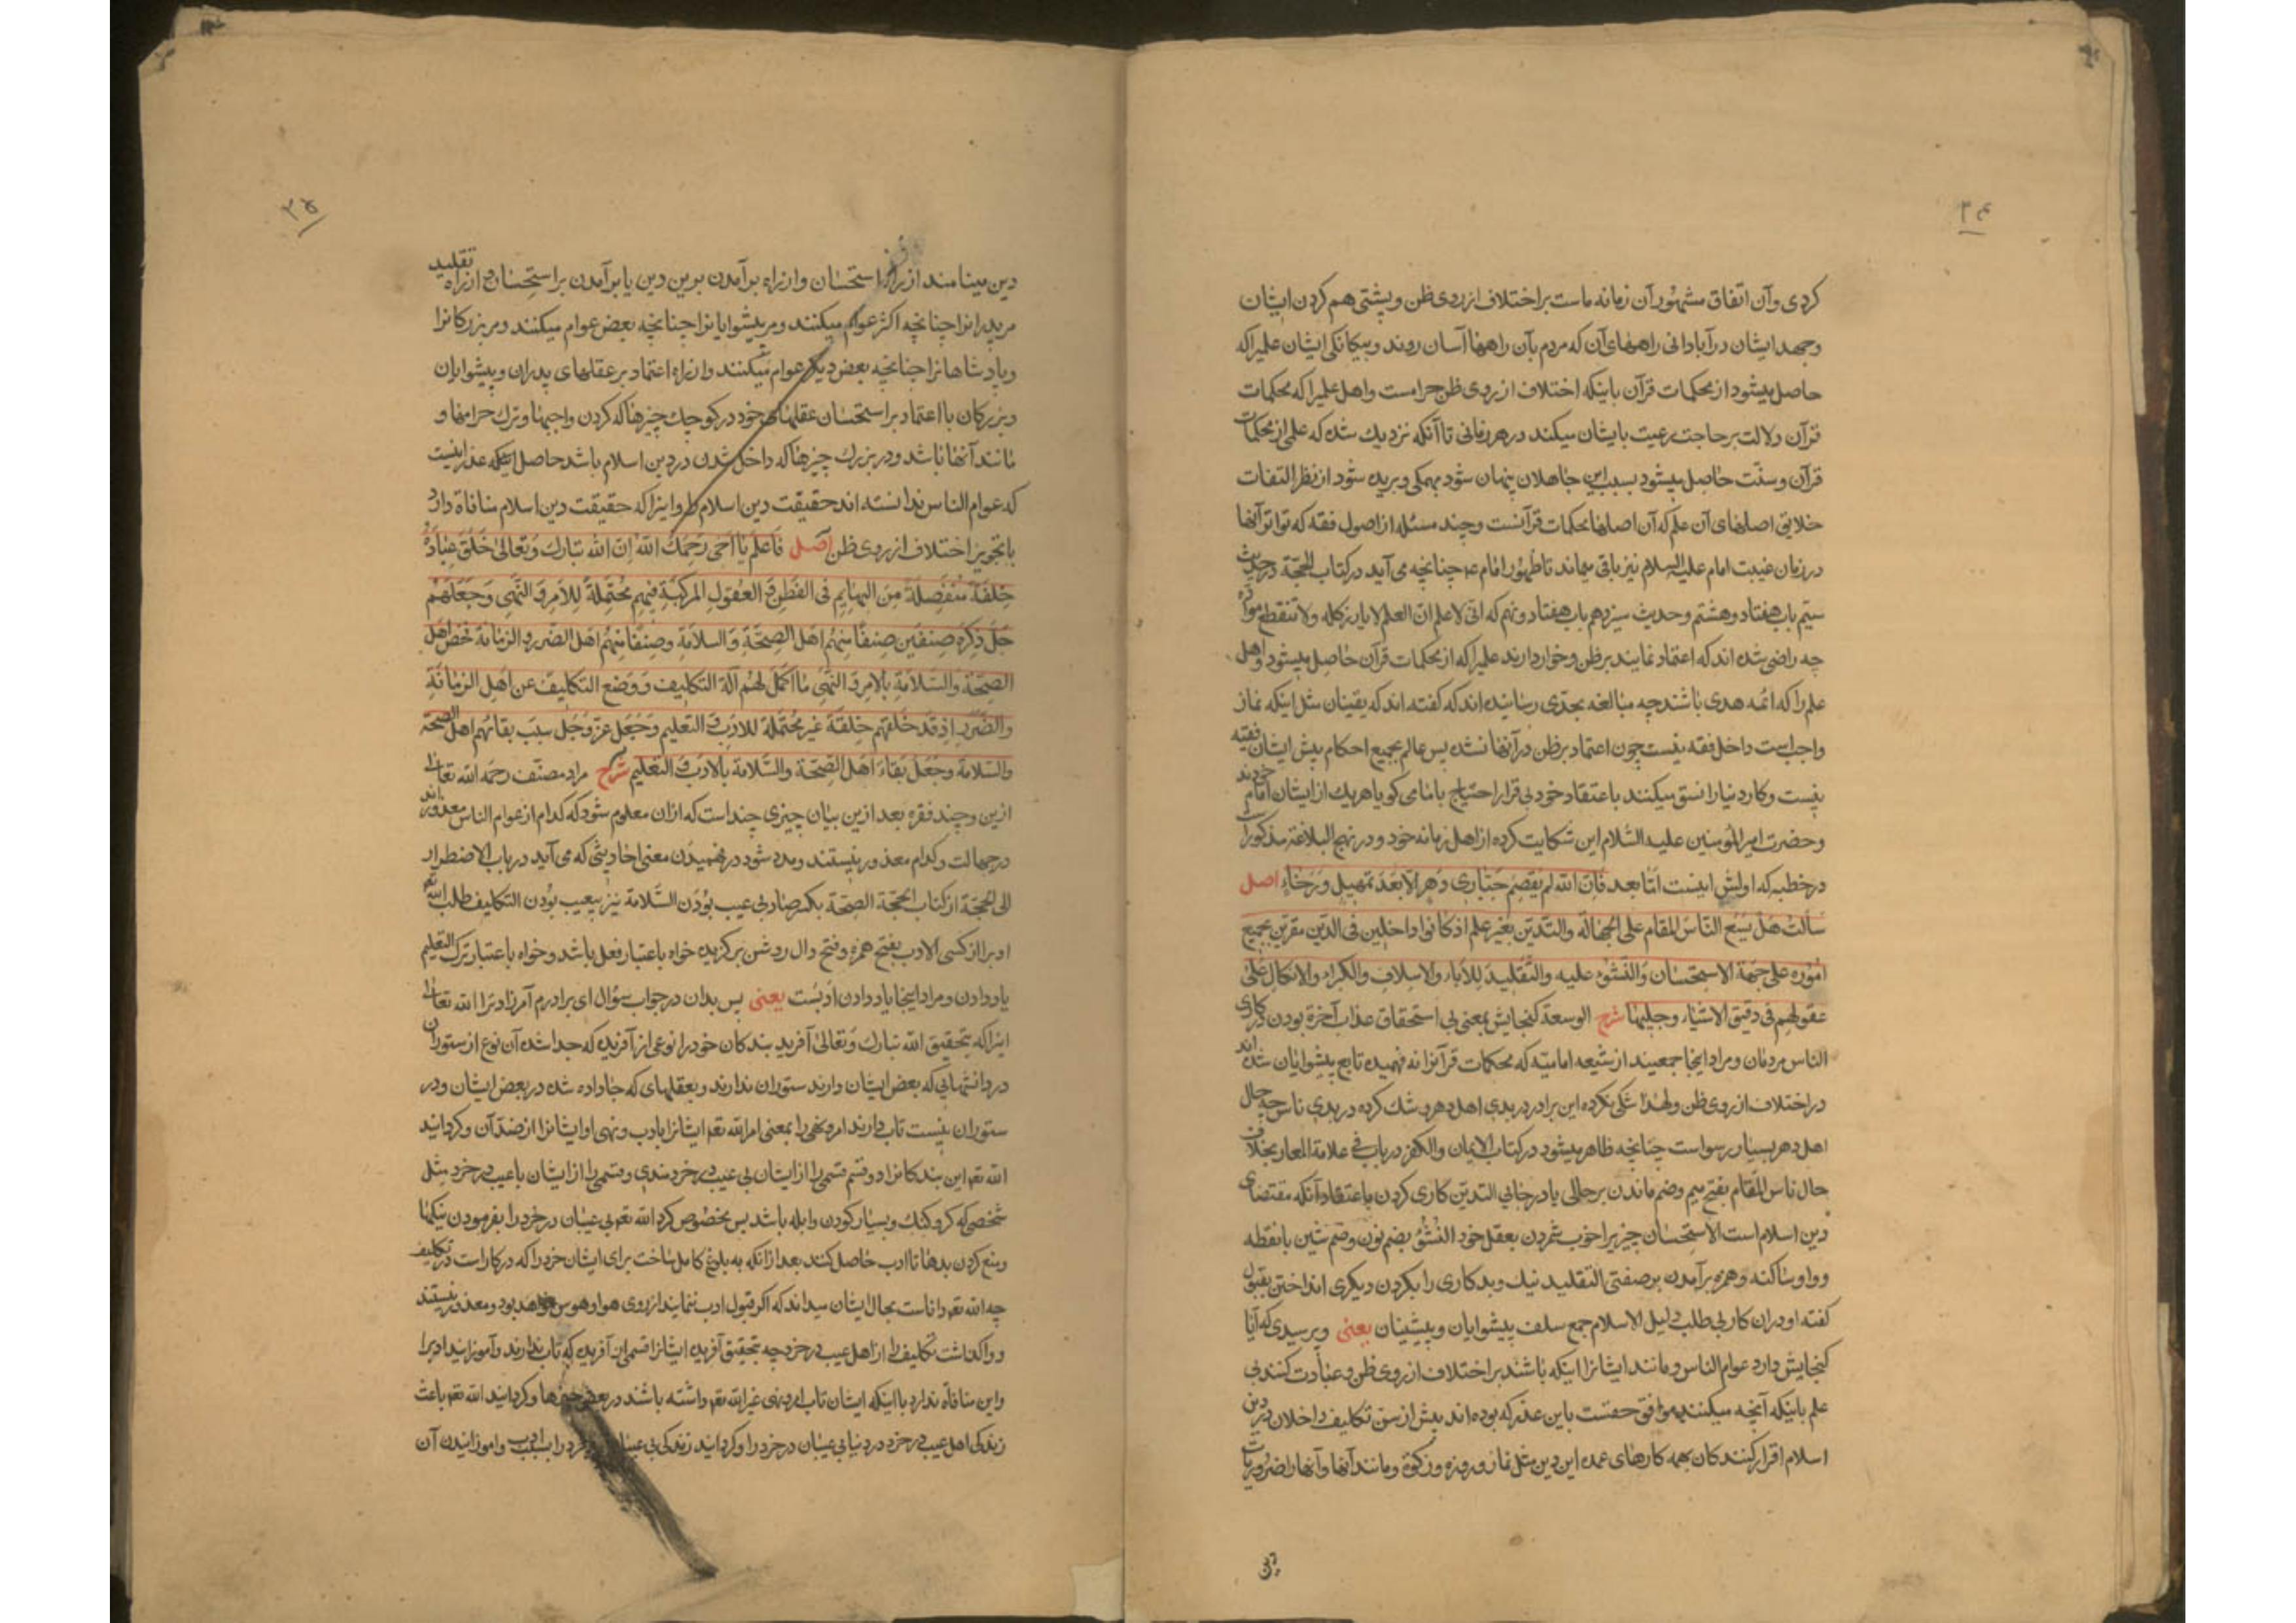 ۳۴
کردی وآن اتفاق مشهور آن زمانه ماست بر اختلاف از روی ظن و پشتی هم کردن ایشان
وجهد ایشان در آبادانی راههای آن که مردم بآن راهها آسان روند و بیکانکی ایشان علمیرا که
حاصل میشود از محکمات قرآن باینکه اختلاف از روی ظن حرامست واهل علمیرا که محکمات
قرآن دلالت بر حاجت رعیت بایشان میکند در هر زمانی تا آنکه نزدیك شده که علمی از محکمات
قرآن وسنّت حاصل میشود بسبب این جاهلان پنهان شود بهمکی و بریده شود از نظر التفات
خلایق اصلهای آن علم که آن اصلها محکمات قرآنست وچند مسئله از اصول فقه که تواتر آنها
در زمان غیبت امام علیه السلام نیز باقی میماند تا ظهور امام عم چنانچه می آید در کتاب الحجّة در حدیث
سیّم باب هفتاد و هشتم وحدیث سیزدهم باب هفتاد ونهم که انّی لاعلم انّ العلم لا یارز کله ولا تنقطع موادّه
چه راضی شده اند که اعتماد نمایند بر ظن وخوار دارند علمیرا که از محکمات قرآن حاصل میشود واهل
علم را که ائمه هدی باشند چه مبالغه بحدّی رسانیده اند که کفته اند که یقینیان مثل اینکه نماز
واجب است داخل فقه نیست چون اعتماد بر ظن در آنها نشده پس عالم بجمیع احکام پیش ایشان فقیه
نیست وکار دنیا را نسق میکنند باعتقاد خود بی قرار احتیاج بامامی کویا هر یك از ایشان امام خودند
وحضرت امیر المؤمنین علیه السّلام این شکایت کرده از اهل زمانه خود و در نهج البلاغة مذکور است
در خطبه که اولش اینست امّا بعد فَانّ الله لم یَقصِم جَبّاری دَهرٍ الّا بَعدَ تمهیلٍ وَرَخاءٍ اصل
سَألتَ هَل یَسَعُ النّاسَ المُقام علی الجَهالَة والتّدَیّن بغیر علم اذ کانوا داخلین فی الدّین مقرّین بجمیع
اُمُورِه علی جِهَة الاستحسان وَالنُشُؤ علیه والتَّقلیدِ للآباء والاسلافِ والکبراء والاتکال عَلی
عقولهِم فی دقیق الاشیاء وجلیلها شرح الوسعة کنجایش بمعنی بی استحقاق عذاب آخرة بودن در کاری
الناس مردمان ومراد اینجا جمعیند از شیعه امامیّه که محکمات قرآنرا نه فهمیده تابع پیشوایان شده اند
در اختلاف از روی ظن ولهذا شکی نکرده این برادر در بدی اهل دهر و شك کرده در بدی ناس چه حال
اهل دهر بسیار رسواست چنانچه ظاهر میشود در کتاب الایمان والکفر در باب فی علامة المعار بخلاف
حال ناس المُقام بفتح میم وضم ماندن بر حالی یا در جائی التدیّن کاری کردن باعتقاد آنکه مقتضای
دین اسلام است الاستحسان چیزیرا خوب شمردن بعقل خود النُشُؤ بضم نون وضم شین بانقطه
وواو ساکنه وهمزه برآمدن بر صفتی التقلید نیك وبد کاری را بکردن دیکری انداختن بقبول
کفته او در آن کار بی طلب دلیل الاسلام جمع سلف پیشوایان وپیشینیان یعنی وپرسیدی که آیا
کنجایش دارد عوام الناس ومانند ایشانرا اینکه باشند بر اختلاف از روی ظن وعبادت کنند بی
علم باینکه آنچه میکنند موافق حقست باین عذر که بوده اند پیش از سن تکلیف داخلان در دین
اسلام اقرار کنندکان بهمه کارهای عمده این دین مثل نماز وروزه وزکوة ومانند آنها وآنها را ضروریات
دین
۳۵
دین مینامند از راه استحسان واز راه برآمدن برین دین یا برآمدن بر استحسان واز راه تقلید
مریدانرا چنانچه اکثر عوام میکنند ومر پیشوایانرا چنانچه بعض عوام میکنند ومر بزرکانرا
وپادشاهانرا چنانچه بعض دیکر عوام میکنند واز راه اعتماد بر عقلهای پدران وپیشوایان
وبزرکان با اعتماد بر استحسان عقلهای خود در کوچك چیزها که کردن واجبها وترك حرامها و
مانند آنها باشد ودر بزرك چیزها که داخل شدن در دین اسلام باشد حاصل اینکه عذر اینست
که عوام الناس ندانسته اند حقیقت دین اسلام را واینرا که حقیقت دین اسلام منافاة دارد
با تجویز اختلاف از روی ظن اصل فَاعلَم یَا اَخی رَحِمَكَ الله اِنّ الله تبارك وَتعالی خَلَقَ عِبادَهُ
خِلقَةً مُنفَصِلةً مِنَ البهایِم فی الفِطَنِ وَ العُقولِ المرکبةِ فیهِم مُحتَمِلةً لِلاَمرِ وَ النَّهی وَجَعَلَهُم
جَلّ ذِکرُهُ صِنفَین صِنفًا مِنهُم اَهل الصِحَّةِ وَالسلامَةِ وصِنفًا مِنهُم اَهل الضّرر والزمانة فخصّ اهل
الصِحّة والسّلامَة بِالاَمرِ وَ النّهی ما اکمَلَ لَهُم آلَةَ التکلیف وَوَضَعَ التکلیفَ عَن اَهلِ الزمانَةِ
والضّرَرِ اِذ قَد خَلَقَهُم خِلقَةً غیر مُحتَمِلةٍ لِلادَبِ وَ التعلیم وَجَعَلَ عزّ وَجَلّ سَبَبَ بقائهم اهل الصحة
والسّلامة وجَعَلَ بَقاءَ اَهلِ الصِّحّة والسَّلامة بالادَبِ وَ التعلیم شرح مراد مصنّف رحمه الله تعالی
ازین وچند فقره بعد ازین بیان چیزی چند است که ازان معلوم شود که کدام از عوام الناس معذورند
در جهالت وکدام معذور نیستند ومدد شود در فهمیدن معنی احادیثی که می آید در باب الاضطرار
الی الحجّة از کتاب الحجّة الصحّة بکسر صاد بی عیب بودن السَّلامة نیز بیعیب بودن التکلیف طلب الله تعم
ادبرا از کسی الادب بفتح همزه وفتح دال روش برکزیده خواه باعتبار فعل باشد وخواه باعتبار ترك التعلیم
یاد دادن ومراد اینجا یاد دادن ادبست یعنی پس بدان در جواب سؤال ای برادرم آمرزاد ترا الله تعالی
اینرا که بتحقیق الله تبارك وَتعالی آفرید بندکان خود را نوعی از آفریدن که جدا شده آن نوع از ستوران
در دانشهائی که بعض ایشان دارند ستوران ندارند وبعقلهای که جا داده شده در بعض ایشان ودر
ستوران نیست تاب دارند امر ونهی را بمعنی امر الله تعم ایشانرا بادب ونهی او ایشانرا از ضدّ آن وکردانید
الله تعم این بندکانرا دو قسم قسمی را از ایشان بی عیب در خردمندی وقسمی را از ایشان باعیب در خرد مثل
شخصی که کر وکنك وبسیار کودن وابله باشد پس مخصوص کرد الله تعم بی عیبان در خرد را بفرمودن نیکیها
ومنع کردن بدها تا ادب حاصل کنند بعد ازانکه به بلوغ کامل ساخت برای ایشان خرد را که در کار است در تکلیف
چه الله تعم داناست بحال ایشان میداند که اکر قبول ادب ننمایند از روی هوا وهوس خواهد بود ومعذور نیستند
وواکذاشت تکلیف را از اهل عیب در خرد چه بتحقیق آفریده ایشانرا قسمی از آفریدن که تاب ندارند وآموزانیدن ادبرا
واین منافاة ندارد با اینکه ایشان تاب امر ونهی غیر الله تعم داشته باشند در بعض چیزها وکردانید الله تعم باعث
زندکی اهل عیب در خرد در دنیا بی عیبان در خرد را وکردانید زندکی بی عیبان در خرد را بسبب ادب واموزانیدن آن